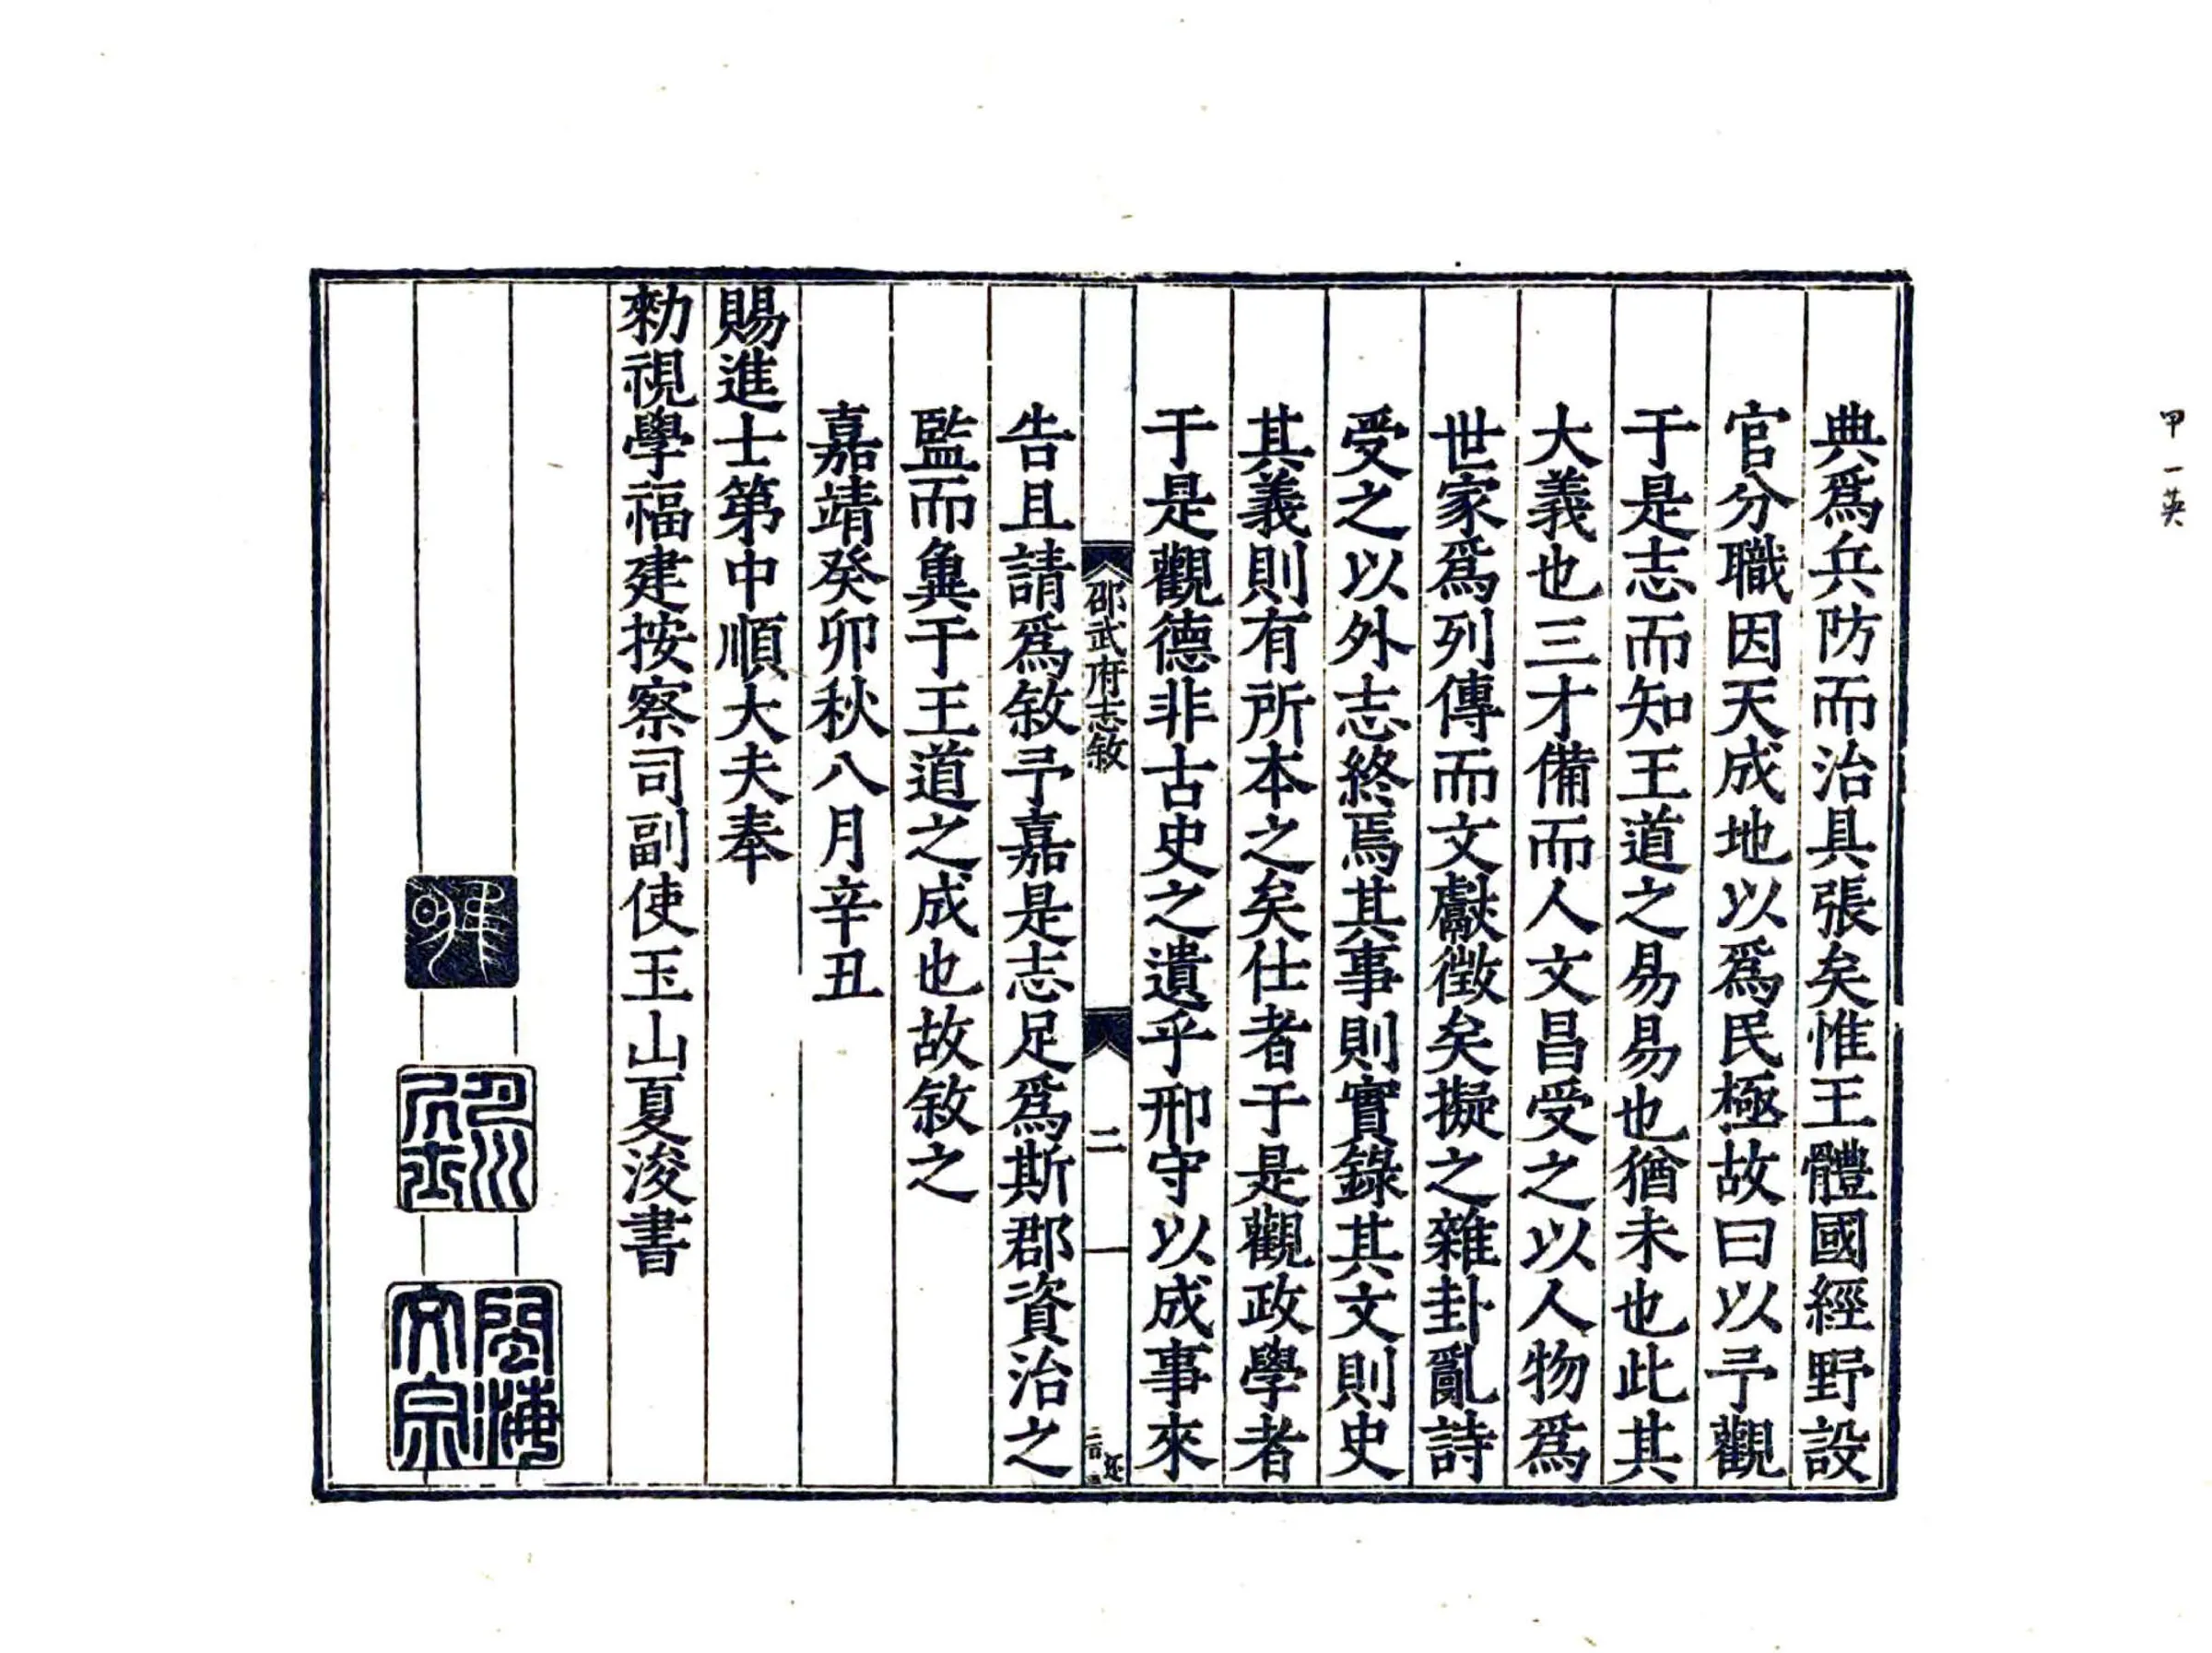 典爲兵防而治具張矣惟王體國經野設
官分職因天成地以爲民極故曰以予觀
于是志而知王道之易易也猶未也此其
大義也三才備而人文昌受之以人物爲
世家爲列傳而文獻徵矣擬之雜卦亂詩
受之以外志終焉其事則實錄其文則史
其義則有所本之矣仕者于是觀政學者
于是觀德非古史之遺乎邢守以成事來
邵武府志敘
二
告且請爲敘予嘉是志足爲斯郡資治之
監而冀于王道之成也故敘之
嘉靖癸卯秋八月辛丑
賜進士第中順大夫奉
勑視學福建按察司副使玉山夏浚書
閩海文宗
甲一英